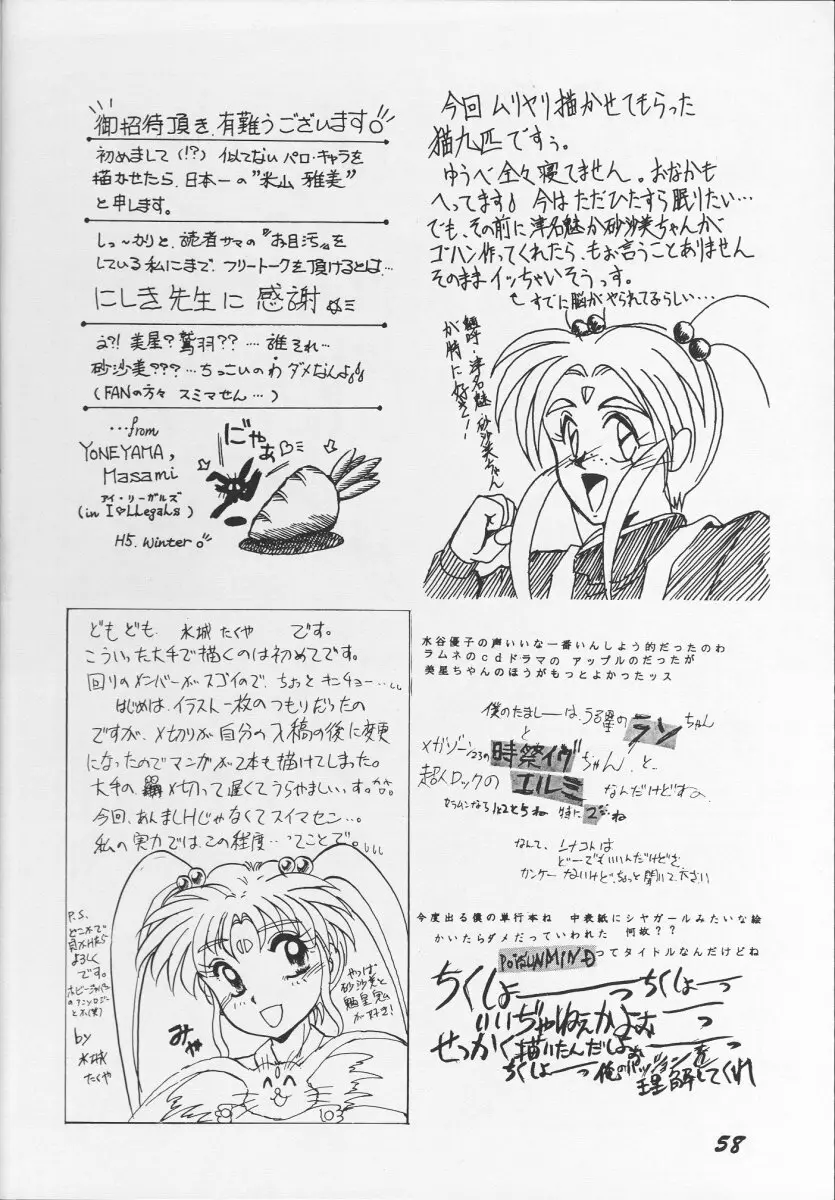 御招待頂き、有難うございます。
初めまして(!?) 似てない パロ・キャラを
描かせたら、日本一の"米山 雅美"
と申します。
しっ~かりと、読者サマの『お目汚』を
している私にまで、フリートークを頂けるとは…
にしき先生に 感謝
う?! 美星? 鷲羽?? ‥‥ 誰それ…
砂沙美???… ちっこいのわ ダメなんよ
(FANの方々 スミマせん…)
…from
YONEYAMA,
Masami
アイ・リーガルズ
(in I♡LLegaLs)
H5. Winter。
にゃあ
今回 ムリヤリ描かせてもらった
猫九匹ですぅ。
ゆうべ全々寝てません。おなかも
へってます 今はただひたすら眠りたい…
でも、その前に津名魅か砂沙美ちゃんが
ゴハン作ってくれたら、もお言うことありません
そのままイッちゃいそうっす。
すでに脳がやられてるらしい…
魎呼・津名魅・砂沙美ちゃん
が特に好き!!
どもども 水城 たくや です。
こういった大手で描くのは初めてです。
回りのメンバーがスゴイので、ちょっとキンチョー…
はじめは、イラスト一枚のつもりだったの
ですが、〆切りが自分の入稿の後に変更
になったのでマンガが2本も描けてしまった。
大手の〆切って遅くてうらやましいぃす。
今回、あんましHじゃなくてスイマセン…。
私の実力では、この程度…ってことで。
P.S.
よろしく
です。
by
水城
たくや
みゃ
やっぱ
砂沙美と
魎皇鬼ム
が好き!
水谷優子の声いいな一番いんしよう的だったのわ
ラムネのcdドラマの アップルのだったが
美星ちゃんのほうがもっとよかったッス
僕のたましーは、うる星の ラン ちゃん
と
メガゾーン23の 時祭イヴ ちゃん と
超人ロックの エルミ なんだけどすよ
セラムンなら1と2と5ね 特に2ね
なんて、
どーでもいいんだけどさ
カンケーないけど、ちょっと聞いて下さい
今度出る僕の単行本ね 中表紙にシヤガールみたいな絵
かいたらダメだっていわれた 何故??
POiSUNMIND ってタイトルなんだけどね
ちくしょーーっちくしょーっ
いいぢゃねぇかよぉーっ
せっかく描いたんだしよぉーー
ちくしょーっ 俺のパッションを
理解してくれ
58